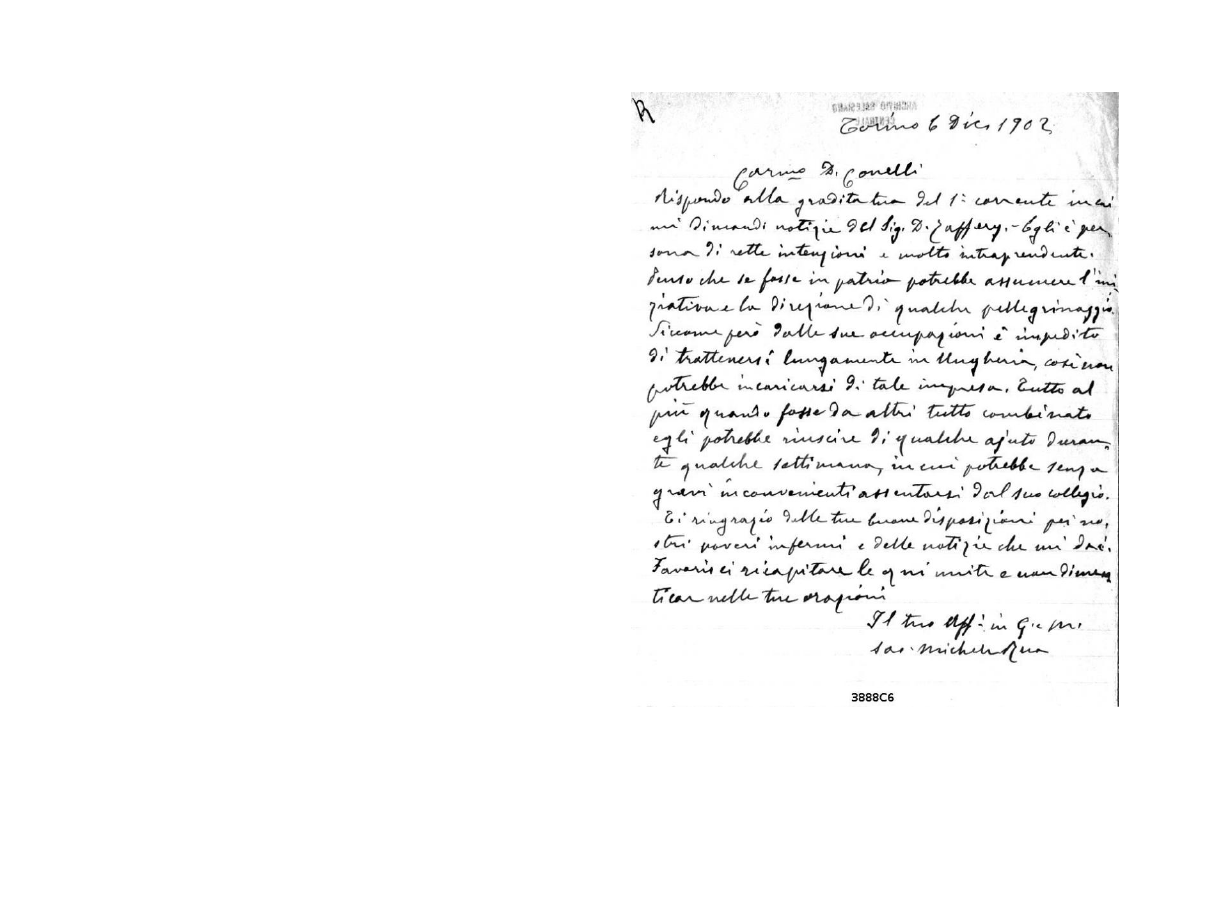 R
ARCHIVIO SALESIANO
CENTRALE
Torino 6 Dic. 1902
Carmo D. Conelli
Rispondo alla gradita tua del 1° corrente in cui
mi dimandi notizie del Sig. D. Zaffery. - Egli è per
sona di rette intenzioni e molto intraprendente.
Penso che se fosse in patria potrebbe assumere l'ini
ziativa e la direzione di qualche pellegrinaggio.
Siccome però dalle sue occupazioni è impedito
di trattenersi lungamente in Ungheria, così non
potrebbe incaricarsi di tale impresa. Tutto al
più quando fosse da altri tutto combinato
egli potrebbe riuscire di qualche ajuto duran
te qualche settimana, in cui potrebbe senza
gravi inconvenienti assentarsi dal suo collegio.
Ti ringrazio delle tue buone disposizioni pei no,
stri poveri infermi e delle notizie che mi dai.
Favorisci ricapitare le qui unite e non dimen
ticar nelle tue orazioni
Il tuo Aff. in G. e M.
Sac. Michele Rua
3888C6